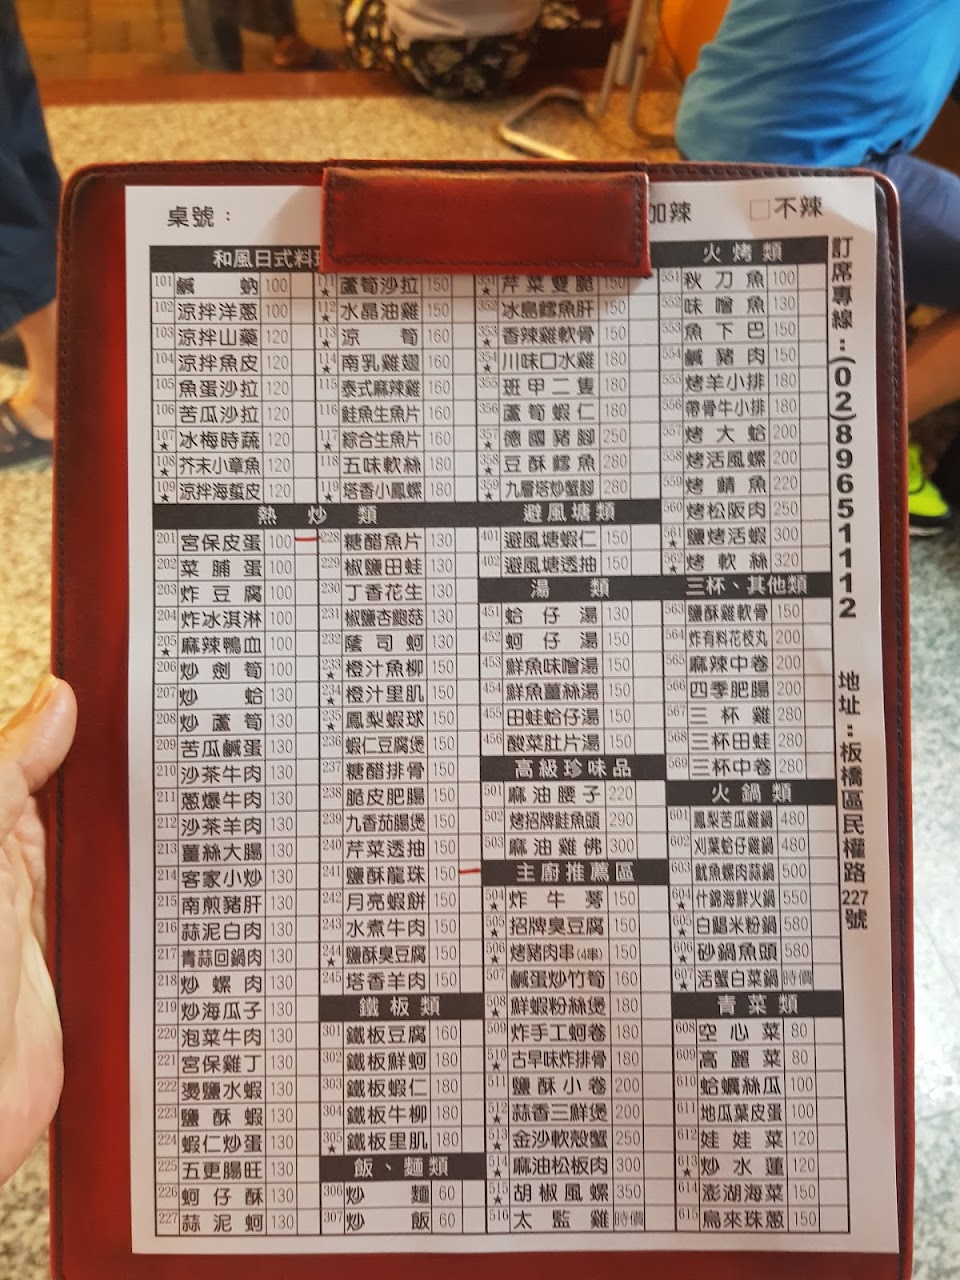 桌號：
加辣 □不辣
和風日式料理
101 鹹蚋 100
102 涼拌洋蔥 100
103 涼拌山藥 120
104 涼拌魚皮 120
105 魚蛋沙拉 120
106 苦瓜沙拉 120
107★ 冰梅時蔬 120
108★ 芥末小章魚 120
109★ 涼拌海蜇皮 120
★ 蘆筍沙拉 150
112★ 水晶油雞 150
113★ 涼筍 160
114★ 南乳雞翅 160
115 泰式麻辣雞 160
116 鮭魚生魚片 160
117★ 綜合生魚片 160
118 五味軟絲 180
119★ 塔香小鳳螺 180
351 芹菜雙脆 150
352 冰島鱈魚肝 150
353★ 香辣雞軟骨 150
354★ 川味口水雞 180
355 班甲二隻 180
356 蘆筍蝦仁 180
357★ 德國豬腳 250
358★ 豆酥鱈魚 280
359★ 九層塔炒蟹腳 280
熱炒類
201 宮保皮蛋 100
202 菜脯蛋 100
203 炸豆腐 100
204 炸冰淇淋 100
205★ 麻辣鴨血 100
206 炒劍筍 100
207 炒蛤 130
208 炒蘆筍 130
209 苦瓜鹹蛋 130
210 沙茶牛肉 130
211 蔥爆牛肉 130
212 沙茶羊肉 130
213 薑絲大腸 130
214 客家小炒 130
215 南煎豬肝 130
216 蒜泥白肉 130
217 青蒜回鍋肉 130
218 炒螺肉 130
219 炒海瓜子 130
220 泡菜牛肉 130
221 宮保雞丁 130
222 燙鹽水蝦 130
223 鹽酥蝦 130
224 蝦仁炒蛋 130
225 五更腸旺 130
226 蚵仔酥 130
227 蒜泥蚵 130
228 糖醋魚片 130
229 椒鹽田蛙 130
230 丁香花生 130
231 椒鹽杏鮑菇 130
232 蔭司蚵 130
233★ 橙汁魚柳 150
234★ 橙汁里肌 150
235★ 鳳梨蝦球 150
236 蝦仁豆腐煲 150
237 糖醋排骨 150
238 脆皮肥腸 150
239 九香茄腸煲 150
240 芹菜透抽 150
241 鹽酥龍珠 150
242 月亮蝦餅 150
243 水煮牛肉 150
244★ 鹽酥臭豆腐 150
245 塔香羊肉 150
鐵板類
301 鐵板豆腐 160
302 鐵板鮮蚵 180
303 鐵板蝦仁 180
304 鐵板牛柳 180
305★ 鐵板里肌 180
飯、麵類
306 炒麵 60
307 炒飯 60
避風塘類
401 避風塘蝦仁 150
402 避風塘透抽 150
湯類
451 蛤仔湯 130
452 蚵仔湯 150
453 鮮魚味噌湯 150
454 鮮魚薑絲湯 150
455 田蛙蛤仔湯 150
456 酸菜肚片湯 150
高級珍味品
501 麻油腰子 220
502 烤招牌鮭魚頭 290
503 麻油雞佛 300
主廚推薦區
504★ 炸牛蒡 150
505★ 招牌臭豆腐 150
506★ 烤豬肉串(4串) 150
507 鹹蛋炒竹筍 160
508★ 鮮蝦粉絲煲 180
509 炸手工蚵卷 180
510★ 古早味炸排骨 180
511 鹽酥小卷 200
512★ 蒜香三鮮煲 200
513★ 金沙軟殼蟹 250
514★ 麻油松板肉 300
515★ 胡椒風螺 350
516 太監雞 時價
火烤類
551 秋刀魚 100
552 味噌魚 130
553 魚下巴 150
554 鹹豬肉 150
555 烤羊小排 180
556 帶骨牛小排 180
557 烤大蛤 200
558 烤活風螺 200
559 烤鯖魚 220
560 烤松阪肉 250
561★ 鹽烤活蝦 300
562★ 烤軟絲 320
三杯、其他類
563 鹽酥雞軟骨 150
564 炸有料花枝丸 200
565 麻辣中卷 200
566 四季肥腸 200
567 三杯雞 280
568 三杯田蛙 280
569 三杯中卷 280
火鍋類
601 鳳梨苦瓜雞鍋 480
602 刈葉蛤仔雞鍋 480
603 魷魚螺肉蒜鍋 500
604★ 什錦海鮮火鍋 550
605★ 白鯧米粉鍋 580
606★ 砂鍋魚頭 580
607★ 活蟹白菜鍋 時價
青菜類
608 空心菜 80
609 高麗菜 80
610 蛤蠣絲瓜 100
611 地瓜葉皮蛋 100
612 娃娃菜 120
613★ 炒水蓮 120
614 澎湖海菜 150
615 烏來珠蔥 150
訂席專線：(02)89651112
地址：板橋區民權路227號